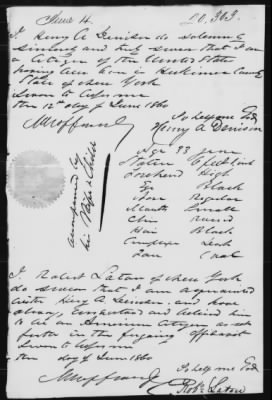 June 14 20,363
I Henry A Denison do solemnly
sincerely and truly swear that I am
a Citizen of the United States
having been born in Herkimer County
State of New York
Sworn to before me
this 12th day of June 1860
So help me God
Henry A Denison
accompanied by
his Wife & Child
Age 33 years
Stature 5 feet
Forehead High
Eyes Black
Nose Regular
Mouth Small
Chin Round
Hair Black
Complexion Dark
Face Oval
I Robert of New York
do swear that I am acquainted
with Henry A Denison and have
always and believed him
to be an American Citizen as set
forth in the foregoing affidavit
Sworn to before me
this day of June 1860
So help me God
Robt